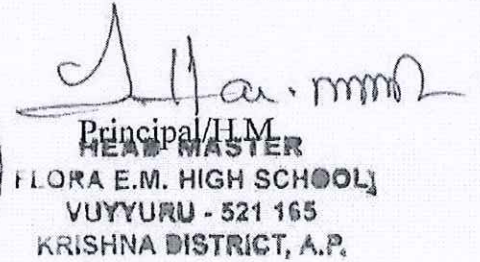 Principal/H.M.
HEAD MASTER
FLORA E.M. HIGH SCHOOL,
VUYYURU - 521 165
KRISHNA DISTRICT, A.P.